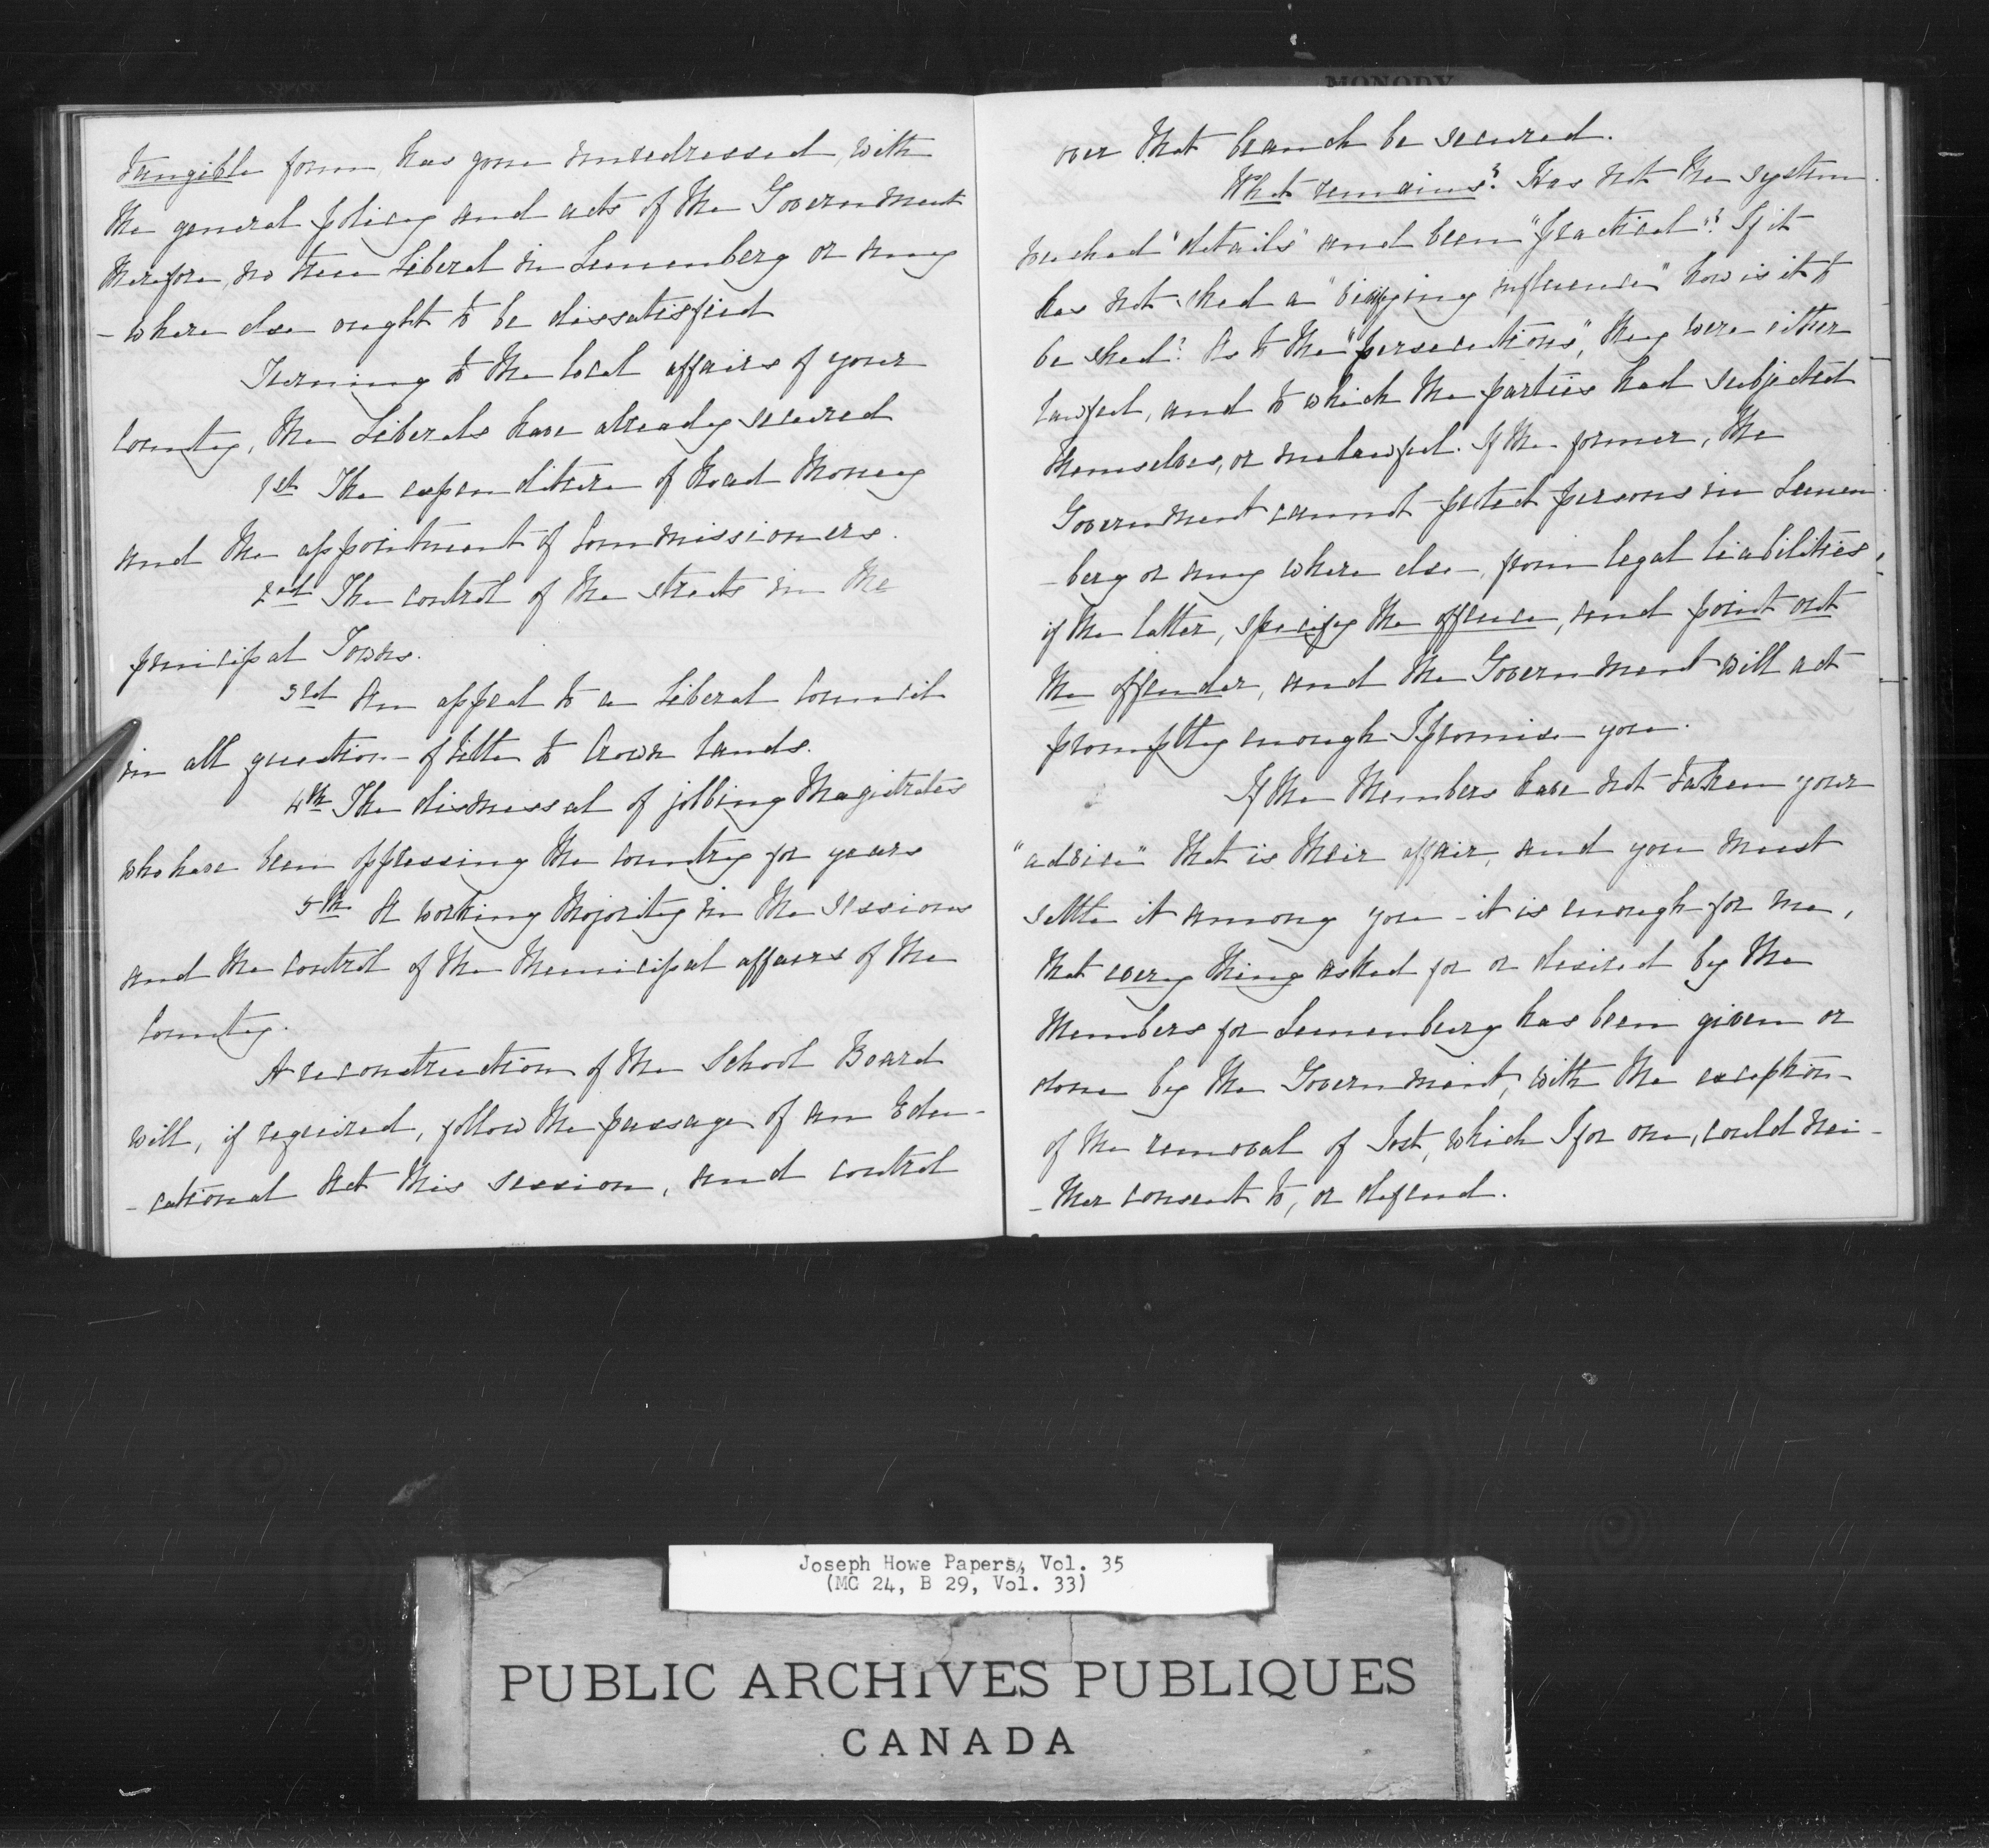 MONODY
tangible form, has gone unredressed, with
the general policy and acts of the Government
therefore, no true Liberal in Lunenberg or any
-where else ought to be dissatisfied
Turning to the local affairs of your
County, the Liberals have already secured
1st The expenditure of Road Money
and the appointment of Commissioners.
2nd The control of the streets in the
principal Towns.
3rd An appeal to a Liberal Council
in all question of title to Crown lands.
4th The dismissal of jobbing Magistrates
who have been oppressing the country for years
5th A working Majority in the Sessions
and the control of the Municipal affairs of the
County.
A reconstruction of the School Board
will, if required, follow the passage of an Edu-
-cational Act this session, and control
over that branch be secured.
What remains? Has not the system
reached "details" and been "practical"? If it
has not shed a "vivifying influence" how is it to
be shed? As to the "persecutions", they were either
lawful, and to which the parties had subjected
themselves, or unlawful. If the former, the
Government cannot protect persons in Lunen
-berg or any where else, from legal liabilities,
if the latter, specify the offence, and point out
the offender, and the Government will act
promptly enough I promise you.
If the Members have not taken your
"advice" that is their affair, and you must
settle it among you - it is enough for me,
that every thing asked for or desired by the
Members for Lunenburg has been given or
done by the Government, with the exception
of the removal of Jost, which I for one, could nei-
-ther consent to, or defend.
Joseph Howe Papers, Vol. 35
(MG 24, B 29, Vol. 33)
PUBLIC ARCHIVES PUBLIQUES
CANADA